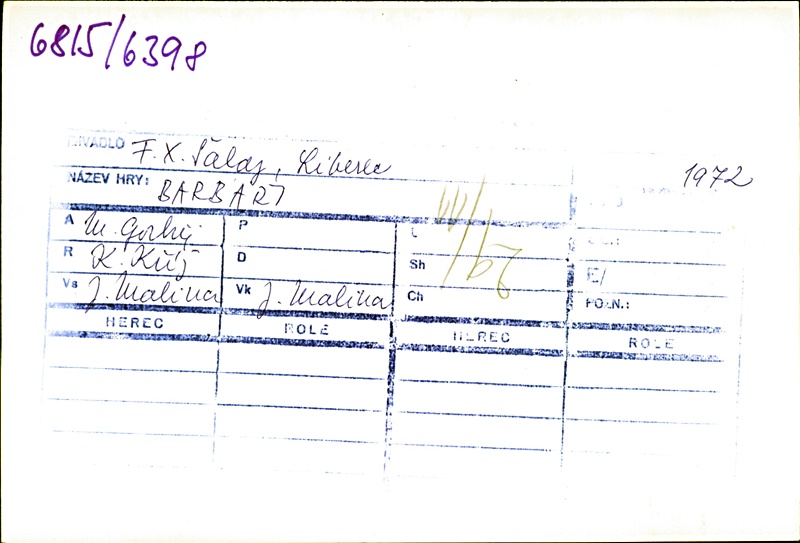 6815/6398
DIVADLO F. X. Šaldy, Liberec 1972
NÁZEV HRY: BARBAŘI
A M. Gorkij P
R K. Kříž D Sh E/
Vs J. Malina Vk J. Malina Ch POZN.:
HEREC ROLE HEREC ROLE